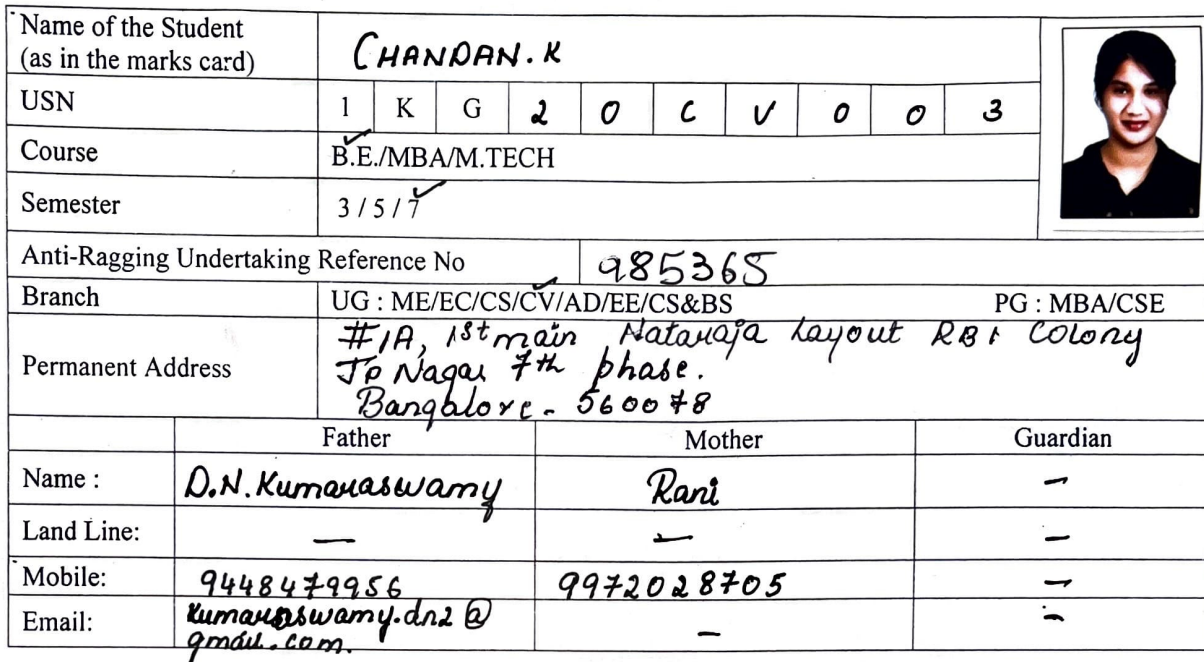 Name of the Student
(as in the marks card) CHANDAN.K
USN 1 K G 2 0 C V 0 0 3
Course B.E./MBA/M.TECH
Semester 3 / 5 / 7
Anti-Ragging Undertaking Reference No 985365
Branch UG : ME/EC/CS/CV/AD/EE/CS&BS PG : MBA/CSE
Permanent Address #1A, 1st main Nataraja Layout RBI Colony
JP Nagar 7th phase.
Bangalore - 560078
Father Mother Guardian
Name : D.N.Kumaraswamy Rani -
Land Line: - - -
Mobile: 9448479956 9972028705 -
Email: kumaraswamy.dn2@ - -
gmail.com.